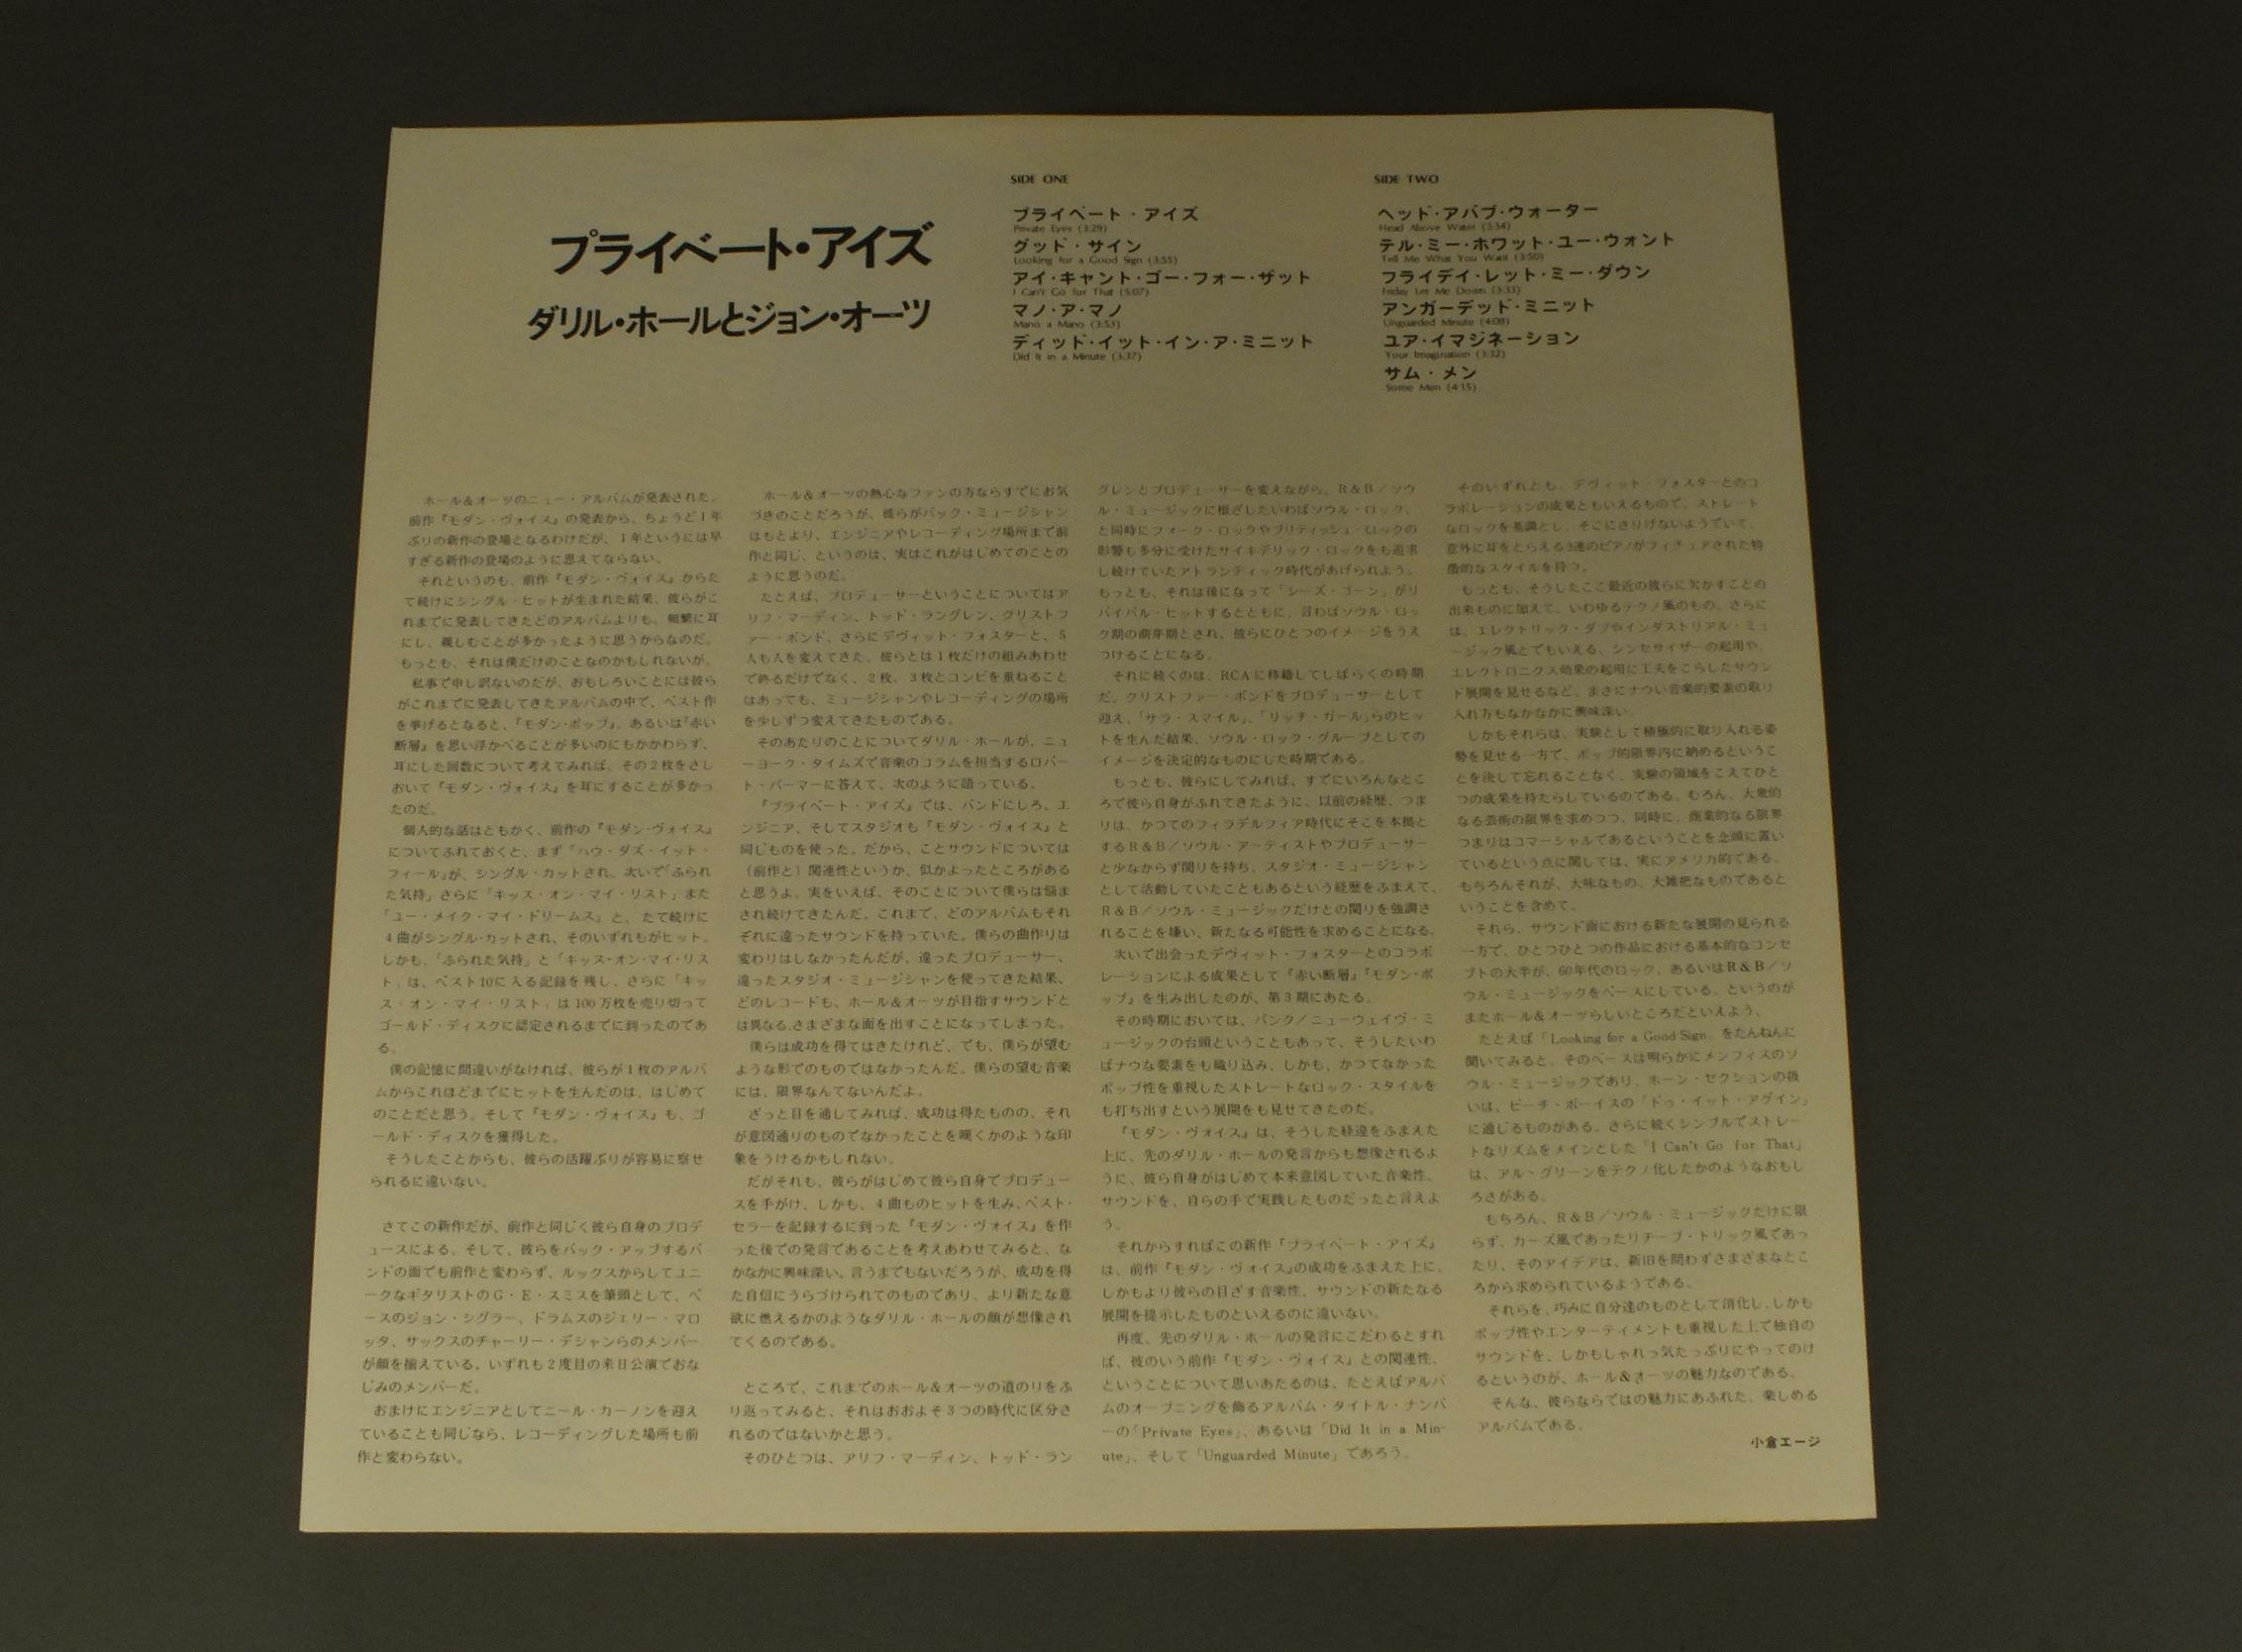 プライベート・アイズ
ダリル・ホールとジョン・オーツ
SIDE ONE
プライベート・アイズ
Private Eyes (3:29)
グッド・サイン
Looking for a Good Sign (3:55)
アイ・キャント・ゴー・フォー・ザット
I Can't Go for That (5:07)
マノ・ア・マノ
Mano a Mano (3:53)
ディッド・イット・イン・ア・ミニット
Did It in a Minute (3:37)
SIDE TWO
ヘッド・アバブ・ウォーター
Head Above Water (3:34)
テル・ミー・ホワット・ユー・ウォント
Tell Me What You Want (3:50)
フライデイ・レット・ミー・ダウン
Friday Let Me Down (3:33)
アンガーデッド・ミニット
Unguarded Minute (4:08)
ユア・イマジネーション
Your Imagination (3:32)
サム・メン
Some Men (4:15)
ホール&オーツのニュー・アルバムが発表された。
前作『モダン・ヴォイス』の発表から、ちょうど1年
ぶりの新作の登場となるわけだが、1年というには早
すぎる新作の登場のように思えてならない。
それというのも、前作『モダン・ヴォイス』からた
て続けにシングル・ヒットが生まれた結果、彼らがこ
れまでに発表してきたどのアルバムよりも、頻繁に耳
にし、親しむことが多かったように思うからなのだ。
もっとも、それは僕だけのことなのかもしれないが。
私事で申し訳ないのだが、おもしろいことには彼ら
がこれまでに発表してきたアルバムの中で、ベスト作
を挙げるとなると、『モダン・ポップ』、あるいは『赤い
断層』を思い浮かべることが多いのにもかかわらず、
耳にした回数について考えてみれば、その2枚をさし
おいて『モダン・ヴォイス』を耳にすることが多かっ
たのだ。
個人的な話はともかく、前作の『モダン・ヴォイス』
についてふれておくと、まず「ハウ・ダズ・イット・
フィール」が、シングル・カットされ、次いで「ふられ
た気持」さらに「キッス・オン・マイ・リスト」また
「ユー・メイク・マイ・ドリームス」と、たて続けに
4曲がシングル・カットされ、そのいずれもがヒット。
しかも、「ふられた気持」と「キッス・オン・マイ・リス
ト」は、ベスト10に入る記録を残し、さらに「キッ
ス・オン・マイ・リスト」は100万枚を売り切って
ゴールド・ディスクに認定されるまでに到ったのであ
る。
僕の記憶に間違いがなければ、彼らが1枚のアルバ
ムからこれほどまでにヒットを生んだのは、はじめて
のことだと思う。そして『モダン・ヴォイス』も、ゴ
ールド・ディスクを獲得した。
そうしたことからも、彼らの活躍ぶりが容易に察せ
られるに違いない。
さてこの新作だが、前作と同じく彼ら自身のプロデ
ュースによる。そして、彼らをバック・アップするバ
ンドの面でも前作と変わらず、ルックスからしてユニ
ークなギタリストのG・E・スミスを筆頭として、ベ
ースのジョン・シグラー、ドラムスのジェリー・マロ
ッタ、サックスのチャーリー・デシャンらのメンバー
が顔を揃えている。いずれも2度目の来日公演でおな
じみのメンバーだ。
おまけにエンジニアとしてニール・カーノンを迎え
ていることも同じなら、レコーディングした場所も前
作と変わらない。
ホール&オーツの熱心なファンの方ならすでにお気
づきのことだろうが、彼らがバック・ミュージシャン
はもとより、エンジニアやレコーディング場所まで前
作と同じ、というのは、実はこれがはじめてのことの
ように思うのだ。
たとえば、プロデューサーということについてはア
リフ・マーディン、トッド・ラングレン、クリストフ
ァー・ボンド、さらにデヴィット・フォスターと、5
人も人を変えてきた。彼らとは1枚だけの組みあわせ
で終るだけでなく、2枚、3枚とコンビを重ねること
はあっても、ミュージシャンやレコーディングの場所
を少しずつ変えてきたものである。
そのあたりのことについてダリル・ホールが、ニュ
ーヨーク・タイムズで音楽のコラムを担当するロバー
ト・パーマーに答えて、次のように語っている。
『プライベート・アイズ』では、バンドにしろ、エ
ンジニア、そしてスタジオも『モダン・ヴォイス』と
同じものを使った。だから、ことサウンドについては
(前作と)関連性というか、似かよったところがある
と思うよ。実をいえば、そのことについて僕らは悩ま
され続けてきたんだ。これまで、どのアルバムもそれ
ぞれに違ったサウンドを持っていた。僕らの曲作りは
変わりはしなかったんだが、違ったプロデューサー、
違ったスタジオ・ミュージシャンを使ってきた結果、
どのレコードも、ホール&オーツが目指すサウンドと
は異なる、さまざまな面を出すことになってしまった。
僕らは成功を得てはきたけれど、でも、僕らが望む
ような形でのものではなかったんだ。僕らの望む音楽
には、限界なんてないんだよ。
ざっと目を通してみれば、成功は得たものの、それ
が意図通りのものでなかったことを嘆くかのような印
象をうけるかもしれない。
だがそれも、彼らがはじめて彼ら自身でプロデュー
スを手がけ、しかも、4曲ものヒットを生み、ベスト・
セラーを記録するに到った『モダン・ヴォイス』を作
った後での発言であることを考えあわせてみると、な
かなかに興味深い。言うまでもないだろうが、成功を得
た自信にうらづけられてのものであり、より新たな意
欲に燃えるかのようなダリル・ホールの顔が想像され
てくるのである。
ところで、これまでのホール&オーツの道のりをふ
り返ってみると、それはおおよそ3つの時代に区分さ
れるのではないかと思う。
そのひとつは、アリフ・マーディン、トッド・ラン
グレンとプロデューサーを変えながら、R&B/ソウ
ル・ミュージックに根ざしたいわばソウル・ロック、
と同時にフォーク・ロックやブリティッシュ・ロックの
影響も多分に受けたサイキデリック・ロックをも追求
し続けていたアトランティック時代があげられよう。
もっとも、それは後になって「シーズ・ゴーン」がリ
バイバル・ヒットするとともに、言わばソウル・ロッ
ク期の萌芽期とされ、彼らにひとつのイメージをうえ
つけることになる。
それに続くのは、RCAに移籍してしばらくの時期
だ。クリストファー・ボンドをプロデューサーとして
迎え、「サラ・スマイル」、「リッチ・ガール」らのヒッ
トを生んだ結果、ソウル・ロック・グループとしての
イメージを決定的なものにした時期である。
もっとも、彼らにしてみれば、すでにいろんなとこ
ろで彼ら自身がふれてきたように、以前の経歴、つま
りは、かつてのフィラデルフィア時代にそこを本拠と
するR&B/ソウル・アーティストやプロデューサー
と少なからず関りを持ち、スタジオ・ミュージシャン
として活動していたこともあるという経歴をふまえて、
R&B/ソウル・ミュージックだけとの関りを強調さ
れることを嫌い、新たなる可能性を求めることになる。
次いで出会ったデヴィット・フォスターとのコラボ
レーションによる成果として『赤い断層』『モダン・ポ
ップ』を生み出したのが、第3期にあたる。
その時期においては、パンク/ニューウェイヴ・ミ
ュージックの台頭ということもあって、そうしたいわ
ばナウな要素をも織り込み、しかも、かつてなかった
ポップ性を重視したストレートなロック・スタイルを
も打ち出すという展開をも見せてきたのだ。
『モダン・ヴォイス』は、そうした経過をふまえた
上に、先のダリル・ホールの発言からも想像されるよ
うに、彼ら自身がはじめて本来意図していた音楽性、
サウンドを、自らの手で実践したものだったと言えよ
う。
それからすればこの新作『プライベート・アイズ』
は、前作『モダン・ヴォイス』の成功をふまえた上に、
しかもより彼らの目ざす音楽性、サウンドの新たなる
展開を提示したものといえるのに違いない。
再度、先のダリル・ホールの発言にこだわるとすれ
ば、彼のいう前作『モダン・ヴォイス』との関連性、
ということについて思いあたるのは、たとえばアルバ
ムのオープニングを飾るアルバム・タイトル・ナンバ
ーの「Private Eyes」、あるいは「Did It in a Min-
ute」、そして「Unguarded Minute」であろう。
そのいずれとも、デヴィット・フォスターとのコ
ラボレーションの成果ともいえるもので、ストレート
なロックを基調とし、そこにさりげないようでいて、
意外に耳をとらえる3連のピアノがフィチュアされた特
徴的なスタイルを持つ。
もっとも、そうしたここ最近の彼らに欠かすことの
出来ものに加えて、いわゆるテクノ風のもの、さらに
は、エレクトリック・ダブやインダストリアル・ミュ
ージック風とでもいえる、シンセサイザーの起用や、
エレクトロニクス効果の起用に工夫をこらしたサウン
ド展開を見せるなど、まさにナウい音楽的要素の取り
入れ方もなかなかに興味深い。
しかもそれらは、実験として積極的に取り入れる姿
勢を見せる一方で、ポップ的限界内に納めるというこ
とを決して忘れることなく、実験の領域をこえてひと
つの成果を持たらしているのである。むろん、大衆的
なる芸術の限界を求めつつ、同時に、商業的なる限界
つまりはコマーシャルであるということを念頭に置い
ているという点に関しては、実にアメリカ的である。
もちろんそれが、大味なもの、大雑把なものであると
いうことを含めて。
それら、サウンド面における新たな展開の見られる
一方で、ひとつひとつの作品における基本的なコンセ
プトの大半が、60年代のロック、あるいはR&B/ソ
ウル・ミュージックをベースにしている、というのが
またホール&オーツらしいところだといえよう。
たとえば「Looking for a Good Sign」をたんねんに
聞いてみると、そのベースは明らかにメンフィスのソ
ウル・ミュージックであり、ホーン・セクションの扱
いは、ビーチ・ボーイスの「ドゥ・イット・アゲイン」
に通じるものがある。さらに続くシンプルでストレー
トなリズムをメインとした「I Can't Go for That」
は、アル・グリーンをテクノ化したかのようなおもし
ろさがある。
もちろん、R&B/ソウル・ミュージックだけに限
らず、カーズ風であったりチープ・トリック風であっ
たり、そのアイデアは、新旧を問わずさまざまなとこ
ろから求められているようである。
それらを、巧みに自分達のものとして消化し、しかも
ポップ性やエンターテイメントも重視した上で独自の
サウンドを、しかもしゃれっ気たっぷりにやってのけ
るというのが、ホール&オーツの魅力なのである。
そんな、彼らならではの魅力にあふれた、楽しめる
アルバムである。
小倉エージ